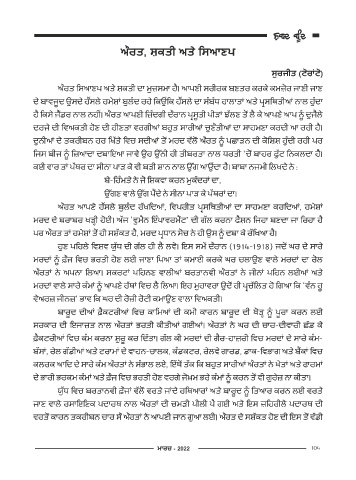 ਹੁਣ
ਔਰਤ, ਸ਼ਕਤੀ ਅਤੇ ਸਿਆਣਪ
ਸੁਰਜੀਤ (ਟੋਰਾਂਟੋ)
ਔਰਤ ਸਿਆਣਪ ਅਤੇ ਸ਼ਕਤੀ ਦਾ ਮੁਜ਼ਸਮਾ ਹੈ। ਆਪਣੀ ਸਰੀਰਕ ਬਣਤਰ ਕਰਕੇ ਕਮਜ਼ੋਰ ਜਾਣੀ ਜਾਣ
ਦੇ ਬਾਵਜੂਦ ਉਸਦੇ ਹੌਂਸਲੇ ਹਮੇਸ਼ਾਂ ਬੁਲੰਦ ਰਹੇ ਕਿਉਂਕਿ ਹੌਂਸਲੇ ਦਾ ਸੰਬੰਧ ਹਾਲਾਤਾਂ ਅਤੇ ਪ੍ਰਸਥਿਤੀਆਂ ਨਾਲ ਹੁੰਦਾ
ਹੈ ਕਿਸੇ ਜੈਂਡਰ ਨਾਲ ਨਹੀਂ। ਔਰਤ ਆਪਣੀ ਜ਼ਿੰਦਗੀ ਦੌਰਾਨ ਪ੍ਰਸੂਤੀ ਪੀੜਾਂ ਝੱਲਣ ਤੋਂ ਲੈ ਕੇ ਆਪਣੇ ਆਪ ਨੂੰ ਦੂਜੈਲੇ
ਦਰਜੇ ਦੀ ਵਿਅਕਤੀ ਹੋਣ ਦੀ ਹੀਣਤਾ ਵਰਗੀਆਂ ਬਹੁਤ ਸਾਰੀਆਂ ਚੁਣੌਤੀਆਂ ਦਾ ਸਾਹਮਣਾ ਕਰਦੀ ਆ ਰਹੀ ਹੈ।
ਦੁਨੀਆਂ ਦੇ ਤਕਰੀਬਨ ਹਰ ਖਿੱਤੇ ਵਿਚ ਸਦੀਆਂ ਤੋਂ ਮਰਦ ਵੱਲੋਂ ਔਰਤ ਨੂੰ ਪਛਾੜਨ ਦੀ ਕੋਸ਼ਿਸ਼ ਹੁੰਦੀ ਰਹੀ ਪਰ
ਜਿਸ ਬੀਜ ਨੂੰ ਜ਼ਿਆਦਾ ਦਬਾਇਆ ਜਾਵੇ ਉਹ ਉੱਨੀ ਹੀ ਤੀਬਰਤਾ ਨਾਲ ਧਰਤੀ 'ਚੋਂ ਬਾਹਰ ਫੁੱਟ ਨਿਕਲਦਾ ਹੈ।
ਕਈ ਵਾਰ ਤਾਂ ਪੱਥਰ ਦਾ ਸੀਨਾ ਪਾੜ ਕੇ ਵੀ ਬੜੀ ਸ਼ਾਨ ਨਾਲ ਉੱਗ ਆਉਂਦਾ ਹੈ। ਬਾਬਾ ਨਜਮੀ ਲਿਖਦੇ ਨੇ :
ਬੇ-ਹਿੰਮਤੇ ਨੇ ਜੋ ਸ਼ਿਕਵਾ ਕਰਨ ਮੁਕੱਦਰਾਂ ਦਾ,
ਉੱਗਣ ਵਾਲੇ ਉੱਗ ਪੈਂਦੇ ਨੇ ਸੀਨਾ ਪਾੜ ਕੇ ਪੱਥਰਾਂ ਦਾ।
ਔਰਤ ਆਪਣੇ ਹੌਂਸਲੇ ਬੁਲੰਦ ਰੱਖਦਿਆਂ, ਵਿਪਰੀਤ ਪ੍ਰਸਥਿਤੀਆਂ ਦਾ ਸਾਹਮਣਾ ਕਰਦਿਆਂ, ਹਮੇਸ਼ਾਂ
ਮਰਦ ਦੇ ਬਰਾਬਰ ਖੜ੍ਹੀ ਹੋਈ। ਅੱਜ 'ਵੁਮੈਨ ਇੰਪਾਵਰਮੈਂਟ' ਦੀ ਗੱਲ ਕਰਨਾ ਫੈਸ਼ਨ ਜਿਹਾ ਬਣਦਾ ਜਾ ਰਿਹਾ ਹੈ
ਪਰ ਔਰਤ ਤਾਂ ਹਮੇਸ਼ਾਂ ਤੋਂ ਹੀ ਸਸ਼ੱਕਤ ਹੈ, ਮਰਦ ਪ੍ਰਧਾਨ ਸੋਚ ਨੇ ਹੀ ਉਸ ਨੂੰ ਦਬਾ ਕੇ ਰੱਖਿਆ ਹੈ।
ਹੁਣ ਪਹਿਲੇ ਵਿਸ਼ਵ ਯੁੱਧ ਦੀ ਗੱਲ ਹੀ ਲੈ ਲਵੋ। ਇਸ ਸਮੇਂ ਦੌਰਾਨ (1914-1918) ਜਦੋਂ ਘਰ ਦੇ ਸਾਰੇ
ਮਰਦਾਂ ਨੂੰ ਫ਼ੌਜ ਵਿਚ ਭਰਤੀ ਹੋਣ ਲਈ ਜਾਣਾ ਪਿਆ ਤਾਂ ਕਮਾਈ ਕਰਕੇ ਘਰ ਚਲਾਉਣ ਵਾਲੇ ਮਰਦਾਂ ਦਾ ਰੋਲ
ਔਰਤਾਂ ਨੇ ਅਪਨਾ ਲਿਆ। ਸਕਰਟਾਂ ਪਹਿਨਣ ਵਾਲੀਆਂ ਬਰਤਾਨਵੀ ਔਰਤਾਂ ਨੇ ਜੀਨਾਂ ਪਹਿਨ ਲਈਆਂ ਅਤੇ
ਮਰਦਾਂ ਵਾਲੇ ਸਾਰੇ ਕੰਮਾਂ ਨੂੰ ਆਪਣੇ ਹੱਥਾਂ ਵਿਚ ਲੈ ਲਿਆ। ਇਹ ਮੁਹਾਵਰਾ ਉਦੋਂ ਹੀ ਪ੍ਰਚੱਲਿਤ ਹੋ ਗਿਆ ਕਿ 'ਵੱਨ ਹੂ
ਵੇਅਰਜ਼ ਜੀਨਜ਼' ਭਾਵ ਕਿ ਘਰ ਦੀ ਰੋਜ਼ੀ ਰੋਟੀ ਕਮਾਉਣ ਵਾਲਾ ਵਿਅਕਤੀ।
ਬਾਰੂਦ ਦੀਆਂ ਫ਼ੈਕਟਰੀਆਂ ਵਿਚ ਕਾਮਿਆਂ ਦੀ ਕਮੀ ਕਾਰਨ ਬਾਰੂਦ ਦੀ ਥੋੜ੍ਹ ਨੂੰ ਪੂਰਾ ਕਰਨ ਲਈ
ਸਰਕਾਰ ਦੀ ਇਜਾਜ਼ਤ ਨਾਲ ਔਰਤਾਂ ਭਰਤੀ ਕੀਤੀਆਂ ਗਈਆਂ। ਔਰਤਾਂ ਨੇ ਘਰ ਦੀ ਚਾਰ-ਦੀਵਾਰੀ ਛੱਡ ਕੇ
ਫ਼ੈਕਟਰੀਆਂ ਵਿਚ ਕੰਮ ਕਰਨਾ ਸ਼ੁਰੂ ਕਰ ਦਿੱਤਾ। ਗੱਲ ਕੀ ਮਰਦਾਂ ਦੀ ਗੈਰ-ਹਾਜ਼ਰੀ ਵਿਚ ਮਰਦਾਂ ਦੇ ਸਾਰੇ ਕੰਮ-
ਬੱਸਾਂ, ਰੇਲ ਗੱਡੀਆਂ ਅਤੇ ਟਰਾਮਾਂ ਦੇ ਵਾਹਨ-ਚਾਲਕ, ਕੰਡਕਟਰ, ਰੇਲਵੇ ਗਾਰਡ, ਡਾਕ-ਵਿਭਾਗ ਅਤੇ ਬੈਂਕਾਂ ਵਿਚ
ਕਲਰਕ ਆਦਿ ਦੇ ਸਾਰੇ ਕੰਮ ਔਰਤਾਂ ਨੇ ਸੰਭਾਲ ਲਏ, ਇੱਥੋਂ ਤੱਕ ਕਿ ਬਹੁਤ ਸਾਰੀਆਂ ਔਰਤਾਂ ਨੇ ਖੇਤਾਂ ਅਤੇ ਫ਼ਾਰਮਾਂ
ਦੇ ਭਾਰੀ ਭਰਕਮ ਕੰਮਾਂ ਅਤੇ ਫ਼ੌਜ ਵਿਚ ਭਰਤੀ ਹੋਣ ਵਰਗੇ ਜੋਖ਼ਮ ਭਰੇ ਕੰਮਾਂ ਨੂੰ ਕਰਨ ਤੋਂ ਵੀ ਗੁਰੇਜ਼ ਨਾ ਕੀਤਾ।
ਯੁੱਧ ਵਿਚ ਬਰਤਾਨਵੀ ਫ਼ੌਜਾਂ ਵੱਲੋਂ ਵਰਤੇ ਜਾਂਦੇ ਹਥਿਆਰਾਂ ਅਤੇ ਬਾਰੂਦ ਨੂੰ ਤਿਆਰ ਕਰਨ ਲਈ ਵਰਤੇ
ਜਾਣ ਵਾਲੇ ਰਸਾਇਣਿਕ ਪਦਾਰਥ ਨਾਲ ਔਰਤਾਂ ਦੀ ਚਮੜੀ ਪੀਲੀ ਪੈ ਗਈ ਅਤੇ ਇਸ ਜ਼ਹਿਰੀਲੇ ਪਦਾਰਥ ਦੀ
ਵਰਤੋਂ ਕਾਰਨ ਤਕਰੀਬਨ ਚਾਰ ਸੌ ਔਰਤਾਂ ਨੇ ਆਪਣੀ ਜਾਨ ਗੁਆ ਲਈ। ਔਰਤ ਦੇ ਸਸ਼ੱਕਤ ਹੋਣ ਦੀ ਇਸ ਤੋਂ ਵੱਡੀ
ਮਾਰਚ - 2022